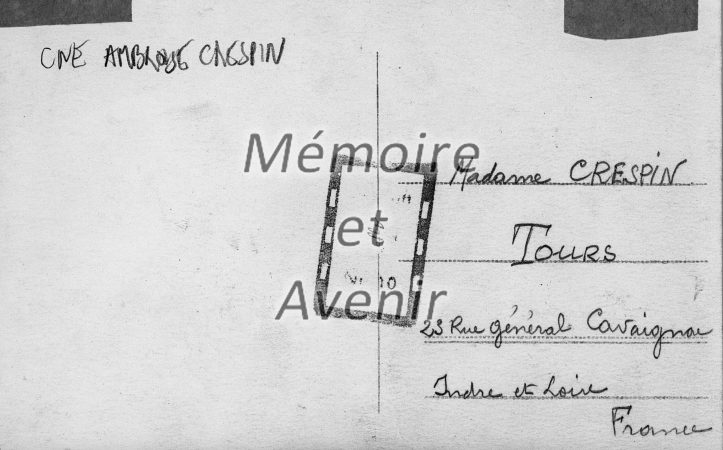 CNE AMBROISE CRESPIN
Mémoire
et
Avenir
Madame CRESPIN
TOURS
23 Rue général Cavaignac
Indre et Loire
France